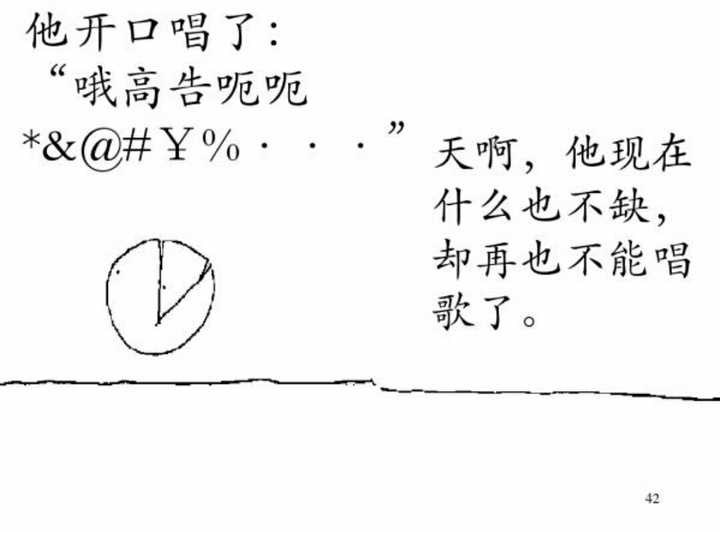 他开口唱了：
“哦高告呃呃
*&@#￥%···”
天啊，他现在
什么也不缺，
却再也不能唱
歌了。
42